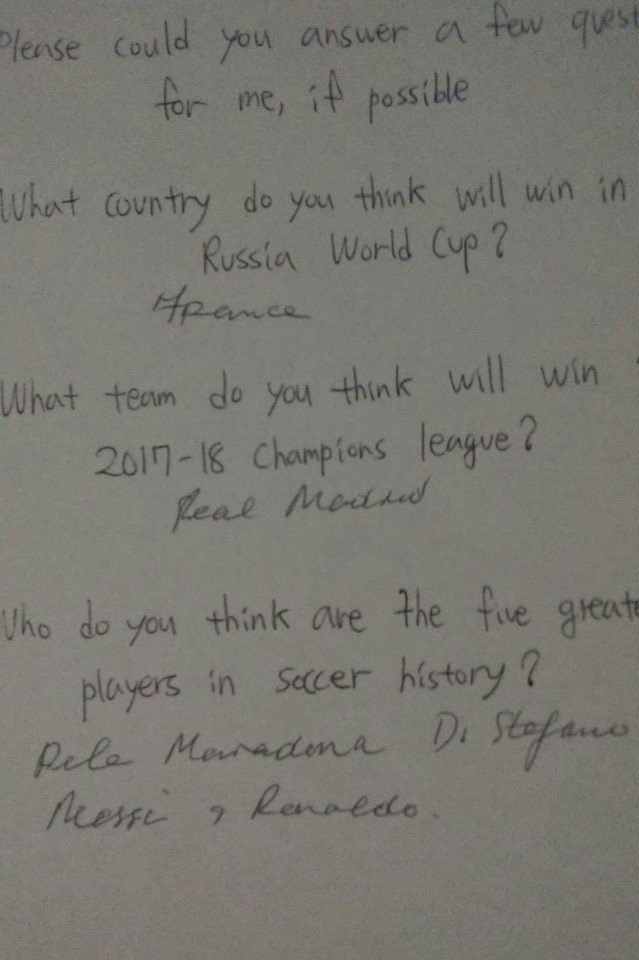 Please could you answer a few quest
for me, if possible
What country do you think will win in
Russia World Cup?
France
What team do you think will win
2017-18 Champions league?
Real Madrid
Who do you think are the five greate
players in soccer history?
Pele Maradona Di Stefano
Messi, Ronaldo.